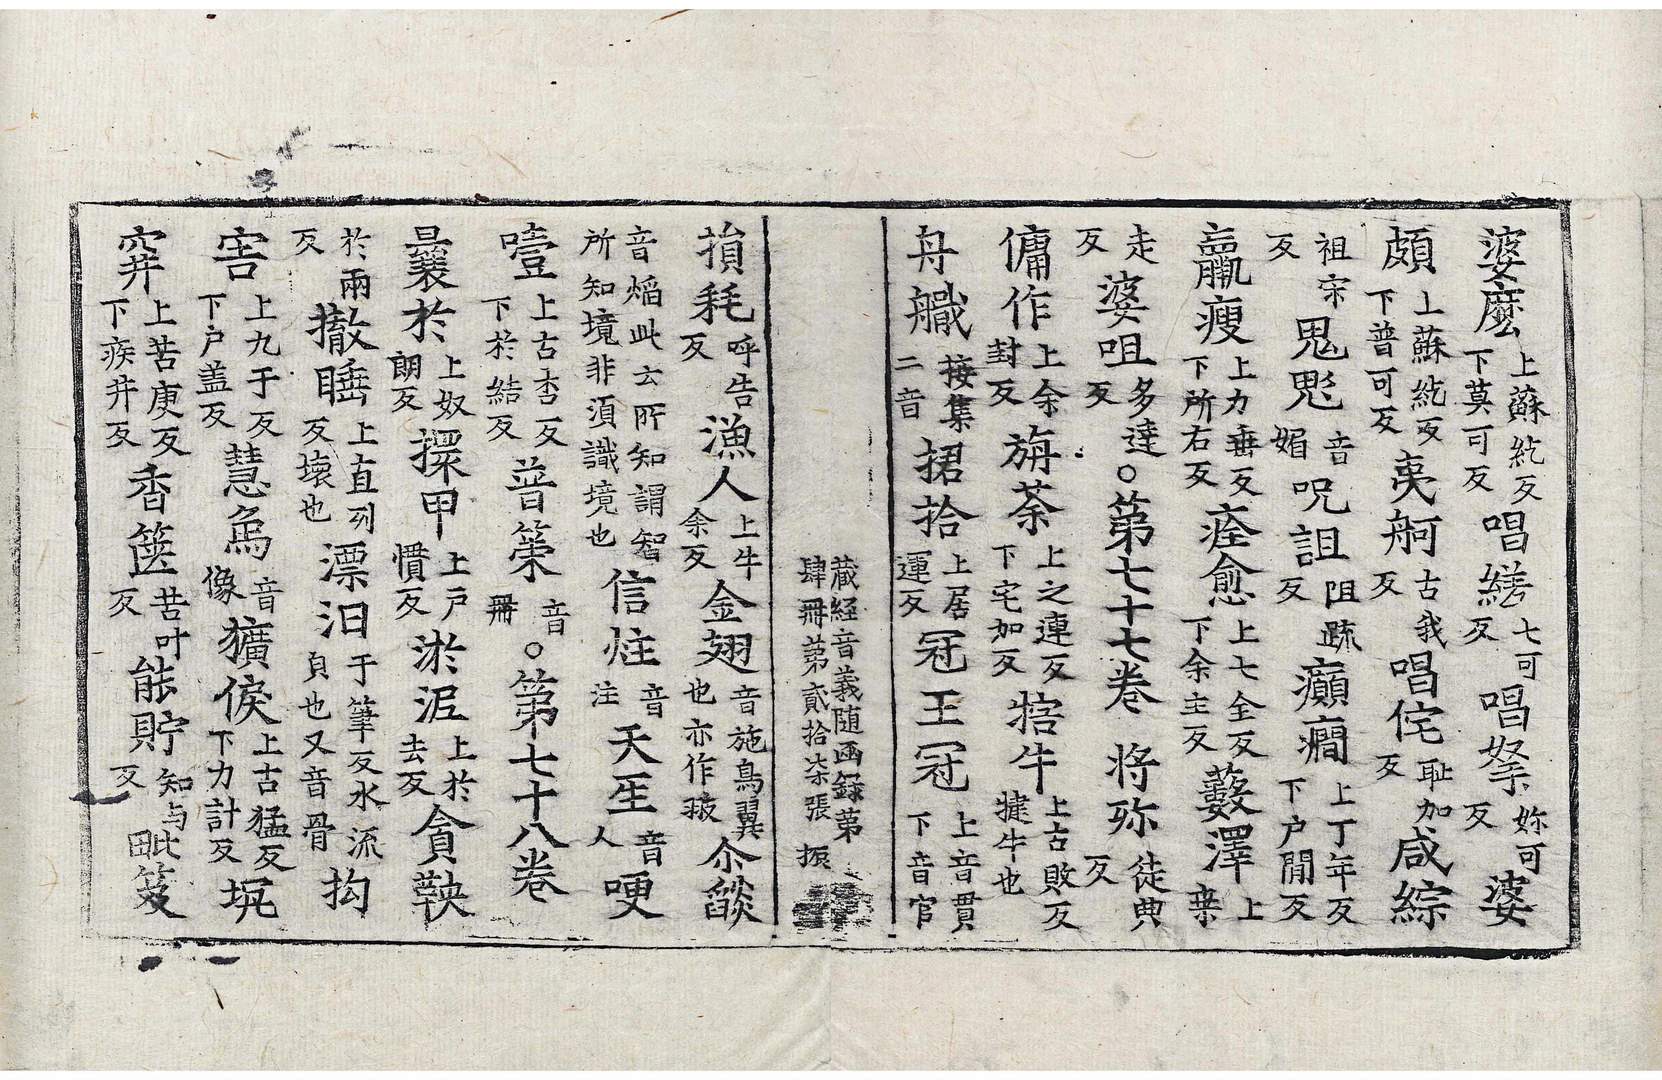 婆麼上蘇紇反下莫可反唱縒七可反唱拏妳可反婆
頗上蘇紇反下普可反夷舸古我反唱侘耻加反咸綜
祖宋反鬼鬽音媚呪詛阻䟽反癲癎上丁年反下户閒反
羸瘦上力垂反下所右反痊愈上七全反下余主反藪澤上桒
走反婆呾多達反○第七十七卷將殄徒典反
傭作上余封反旃荼上之連反下宅加反犗牛上古敗反犍牛也
舟檝接集二音捃拾上居運反冠王冠上音貫下音官
藏経音義随函録第肆冊第貳拾柒張 振
損耗呼告反漁人上牛余反金翅音施鳥翼也亦作䎀尒燄
音焰此云所知謂智所知境非須識境也信炷音注天𤯔音人哽
噎上古杏反下於結反普䇲音冊○第七十八卷
曩於上奴朗反擐甲上户慣反淤泥上於去反貪鞅
於兩反撒睡上直列反壊也漂汩于筆反水流皃也又音骨抅
害上九于反下户盖反慧舃音像獷悷上古猛反下力計反坑
穽上苦庚反下疾井反香篋苦叶反能貯知与反毗笈